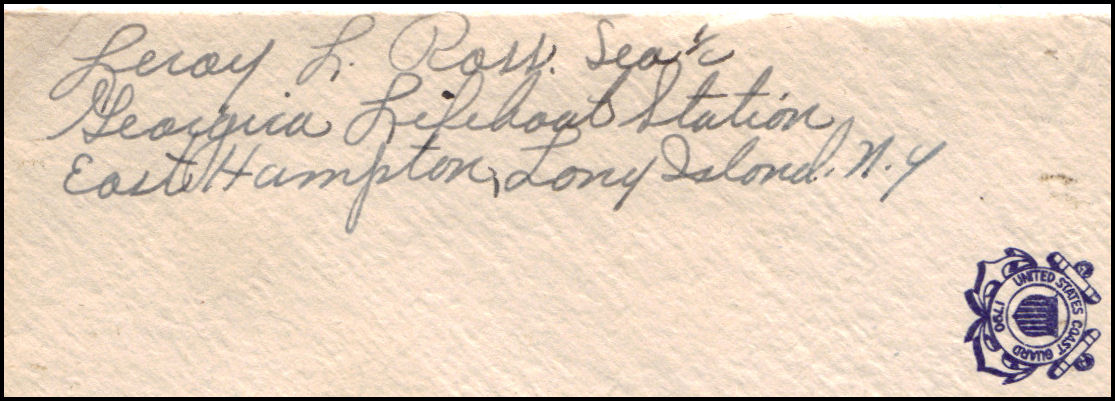 Leroy L. Ross. Sea ½c
Georgica Lifeboat Station
East Hampton, Long Island. N.Y
UNITED STATES COAST GUARD
1790